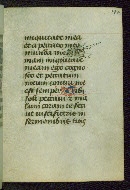 iniquitate mea
et a peccato meo
munda me Quo
niam iniquitatē
meam ego cogno
sco et peccatum
meum contra me
est semper Tibi
soli peccaui et ma
lum coram te fe
ci ut iustificeris in
sermonibus tuis